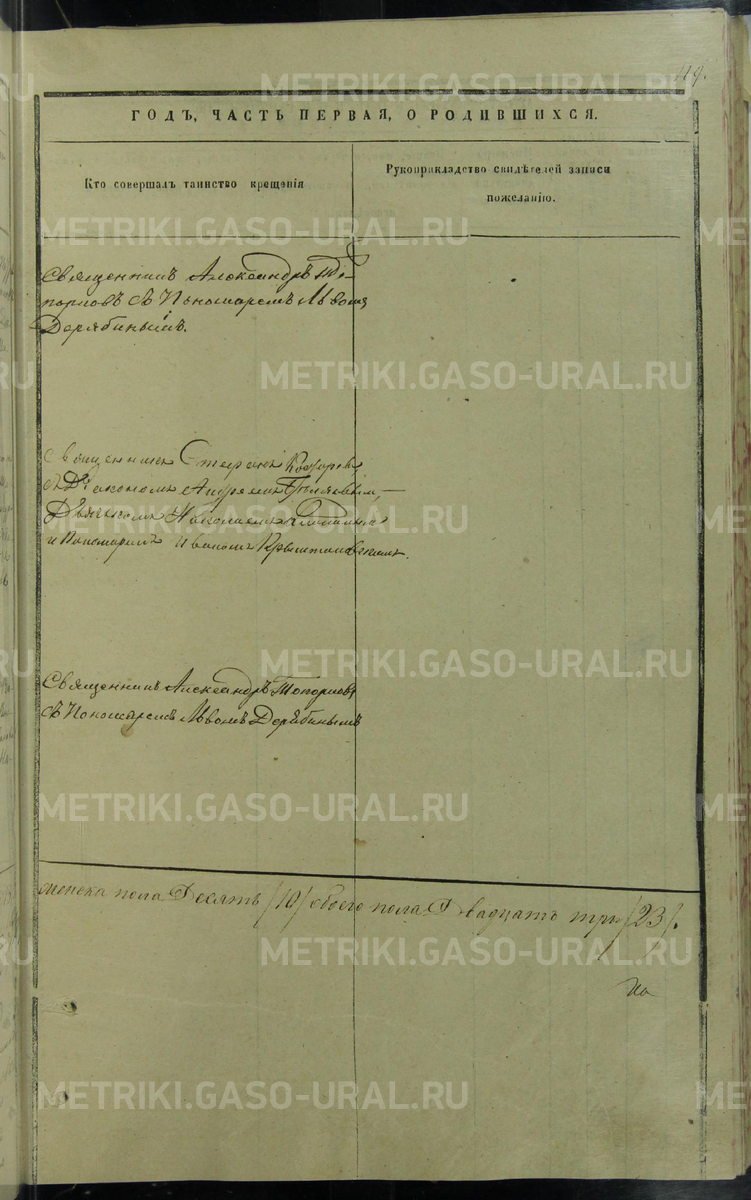 119.
ГОДЪ, ЧАСТЬ ПЕРВАЯ, О РОДИВШИХСЯ.
Кто совершалъ таинство крещенія
Рукоприкладство свидѣтелей записи
пожеланію.
Священникъ Александръ То-
порковъ съ Пономаремъ Львомъ
Дерябинымъ.
Священникъ Стефанъ
съ Діакономъ Андреемъ
Дьячкомъ Николаемъ
и Пономаремъ Иваномъ
Священникъ Александръ Топорковъ
съ Пономаремъ Львомъ Дерябинымъ
женска пола Десять /10/ обоего пола Двадцать три /23/.
METRIKI.GASO-URAL.RU